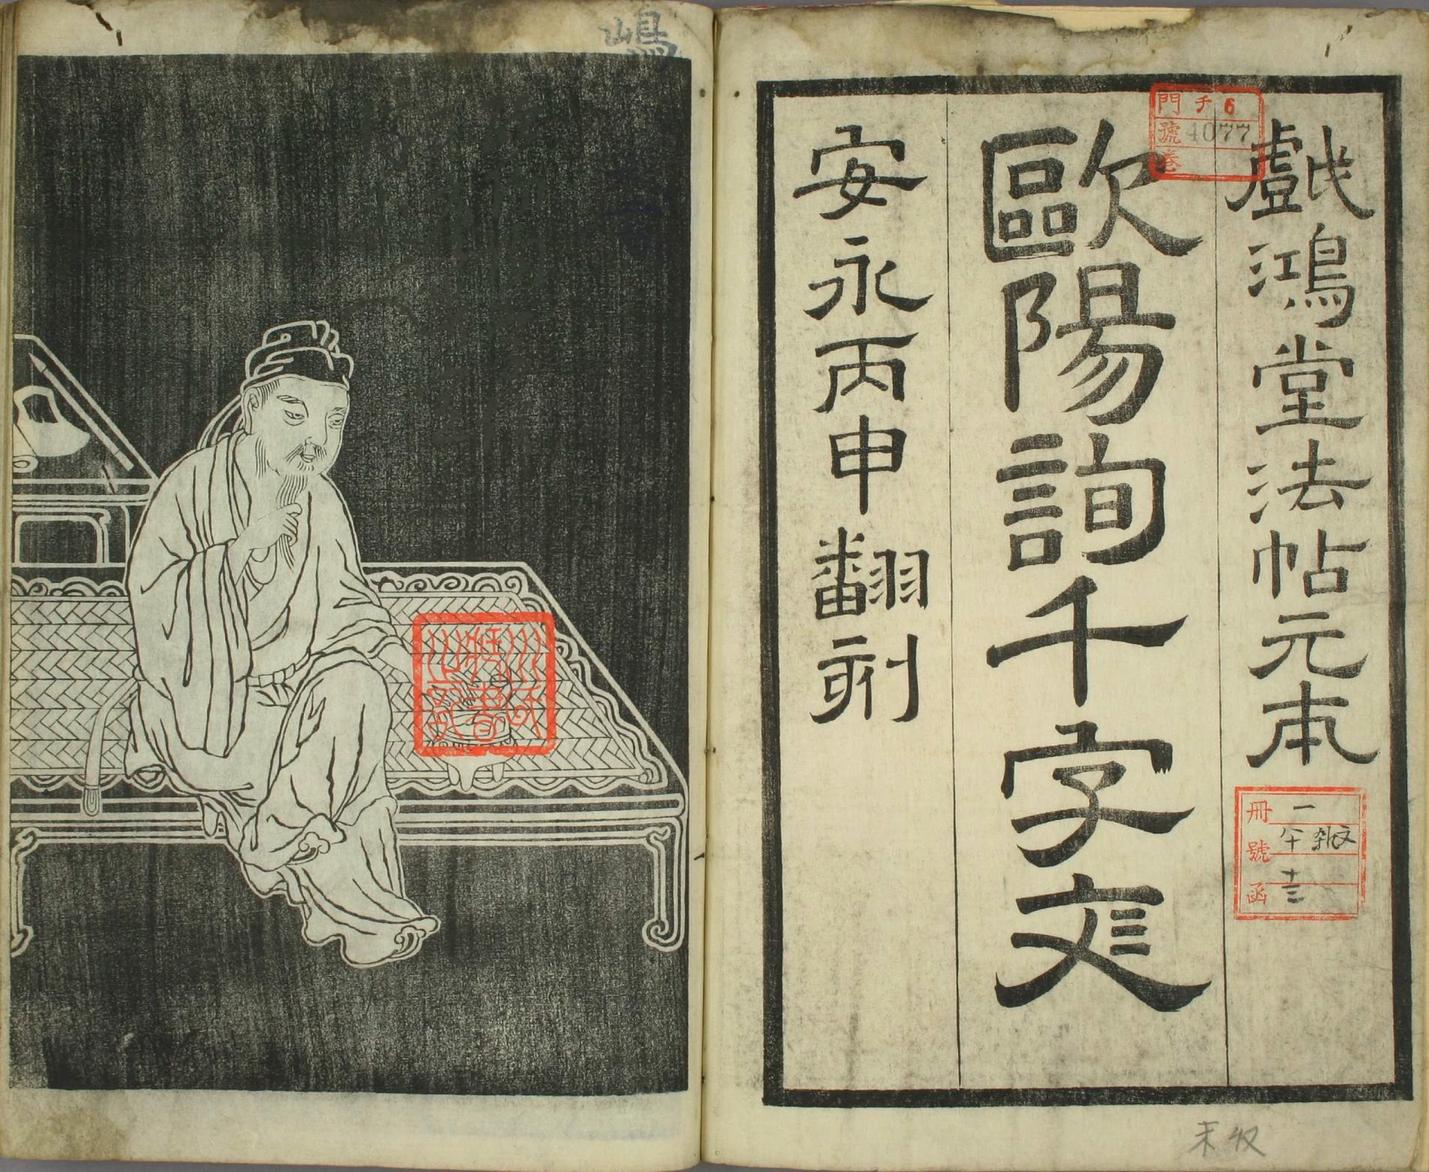 戲鴻堂法帖元本
歐陽詢千字文
安永丙申翻刻
門 チ 6
號 4077
卷
冊 一
號
函 十三
嶋
未收